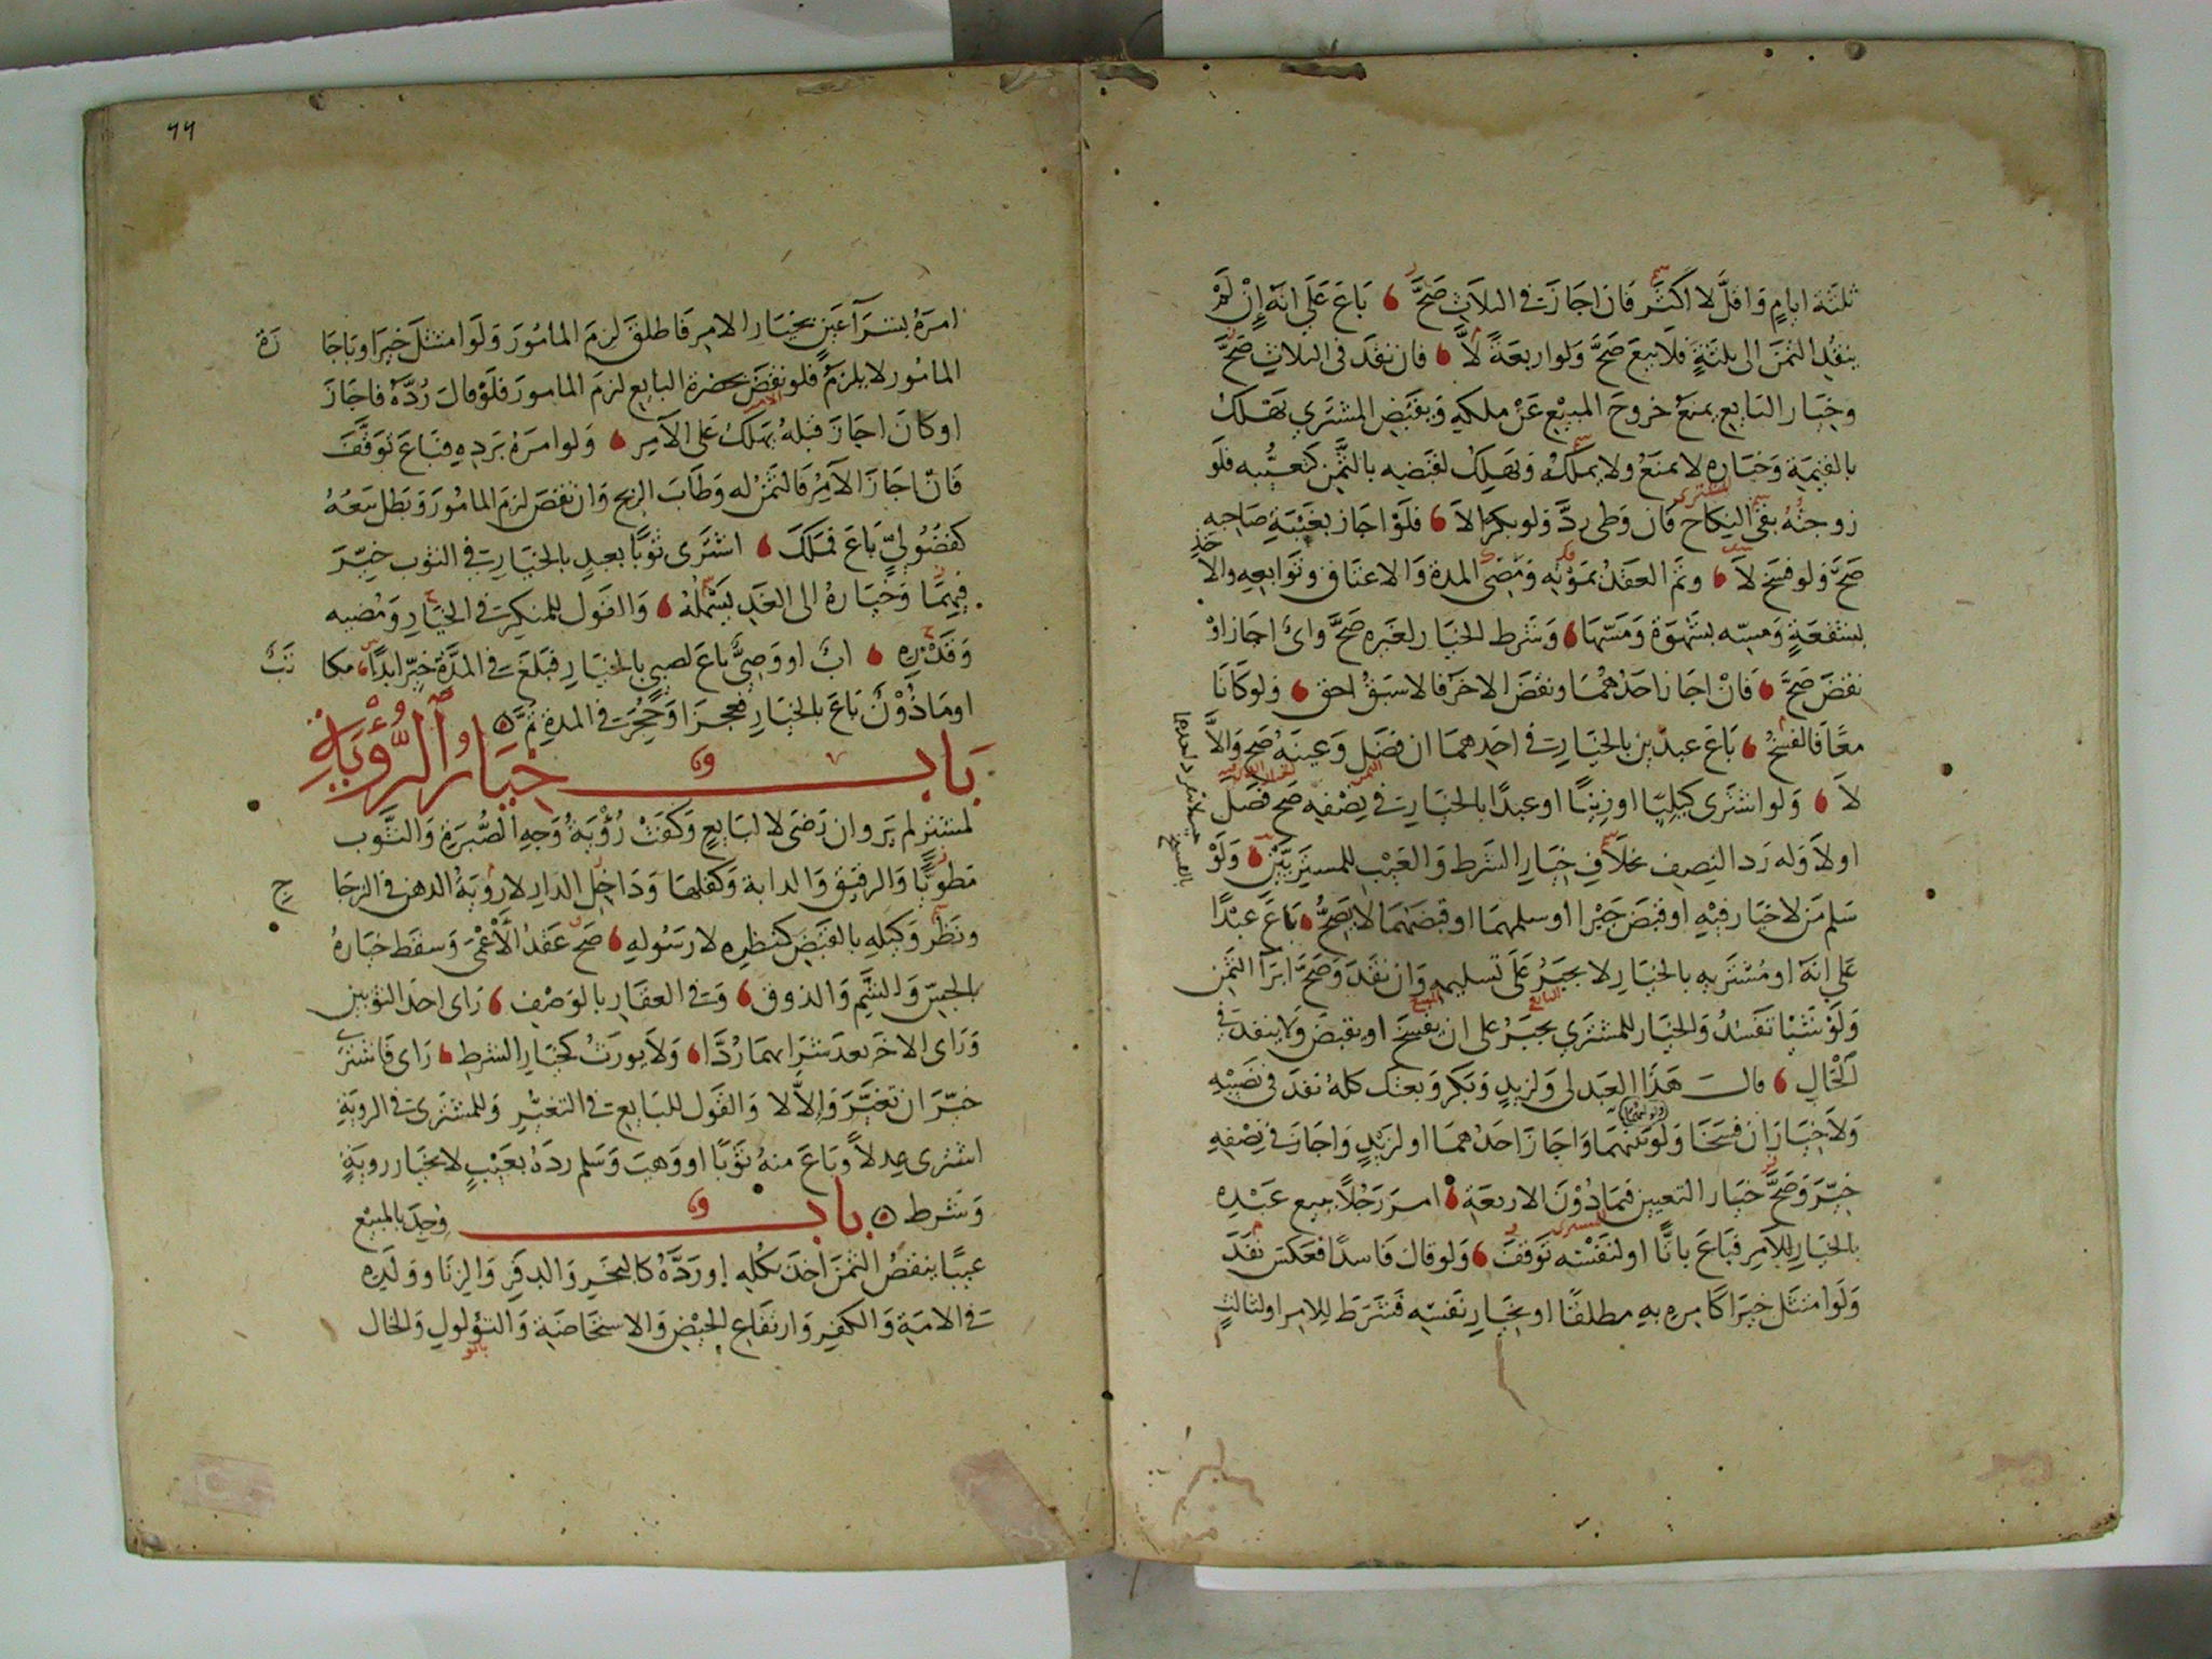 ثلثة ايامٍ وَاقلَّ لا اكثر فان اجازَ في الثلاثِ صَحَّ باعَ عَلَي انهُ إنْ لَمْ
ينقُدِ الثمنَ الى ثلثةٍ فلا بيعَ صَحَّ وَلو اربعةً لاَ فان نقدَ في الثلاثِ صحَّ
وخيَار البَايع يمنعُ خروجَ المبيْعِ عَنْ ملكهِ وَبقبَضِ المشتَري يَهْلكُ
بالقيمَة وَخيَاره لا يمنَعُ ولا يملكُ وَيَهلِكُ لقبَضِهِ بالثَّمَن كتعيُّبه فلَو
زوجتُهُ بقيَ النكِاح فان وَطى ردَّ وَلو بكرًا لاَ فلَوْ اجاز بغَيْبَةِ صَاحِبهِ
صَحَّ وَلو فسَخ لاَ وتم العقدُ بمَوْتِهِ وَمُضِىّ المدة وَالاعتَاق وتوَابعهِ وَالا
بشفعَةٍ وَمسِّه بشَهْوَة وَمَسّهَا وَشرط الخيَار لغَيره صَحَّ واىٌّ اجَاز اوْ
نقضَ صَحَّ فَانْ اجَاز احَدُهُمَا ونقضَ الاخَر فالاسبَقُ احق وَلو كَانَا
معًا فالفسخُ باعَ عبدَين بالخيَار في احَدِهما ان فصَل وَعينهُ صَح وَالاَّ
لاَ وَلو اشترى كيليًا او وزنيًا او عبدًا بالخيَار في نِصْفهِ صَح فصَل
اولاَ وَله رَد النِصِف بخلاَفِ خيَارِ الشرط وَالعَيْب للمشترَيَيْنِ وَلَوْ
سَلم مَن لاخيَار فيْهِ او قبَضَ جَبْرا او سلمهمَا او قبضَهمَا لا يصَحُّ باعَ عبْدًا
عَلي انهُ او مُشتَريهِ بالخيَار لا يجبَرُ عَلَى تسليمِهِ وَان نقدَ وَصَحَّ ابرَآ الثمَن
وَلَوْ شيْئا تفسُدُ وَالخيَار للمشتري يجبَرُ على ان يفسَخَ او يقبضَ وَلا ينفد في
اَلْحَالِ قالَ هَذَا العَبد لى وَلزيدٍ وَبكرٍ وَبعتك كلهُ نفدَ في نَصِيْبهِ
وَلاَ خيَار ان فسَخا وَلَو وَاجَازَ احَدُهمَا او لزَيْدٍ وَاجَازَ في نِصْفهِ
خيّرَ وَصَحَّ خيَار التعيين فيمَا دُوْنَ الاربعَةِ امرَ رَجُلاً ببيع عَبْدِه
بالخيَار للآمِر فبَاعَ باتًّا او لنَفْسِه تَوقفَ وَلو قالَ فاسدًا فعَكسَ نفَدَ
وَلَو امتثل خيرا كامرِه بهِ مطلقًا او بخيَارِ نَفسِه فشَرَط للامِر او لثالثٍ
٦٦
امرَهُ بشرَآ عَينٍ بخيَار الامِر فاطلقَ لزمَ المامُورَ وَلَو امتثلَ خيرا وباجَازَة
المامُور لا يلزمُ فلو نقضَ بحضرة البَايع لزم المامورَ فلَوْ قالَ رُدّهُ فاجَازَ
او كانَ اجَازَ قبلهُ يَهلكُ عَلى الآمِر وَلو امرَهُ برَدهِ فبَاعَ توَقّفَ
فانْ اجَازَ الآمِرُ فالثمَنُ له وَطابَ الربح وَان نقضَ لزمَ المامُورَ وَبَطل بَيعُهُ
كفضُوليٍّ بَاعَ فملكَ اشترى ثوبًا بعبدٍ بالخيَار في الثوب خيِّرَ
فيهِمَا وَخيَارهُ الى الغَدِ يَشْملُهُ وَالقول للمنكِر في الخيَارِ وَمُضيه
وَقدْرِه ابٌ او وَصِيٌّ باعَ لصبيٍ بالخيَار فبلغَ في المدّة خيّر ابدًا مكاتَبٌ
او ماذُوْنٌ باعَ بالخيَارِ فعجزَا وَحُجِرَ في المدة تمَّ
بَاب خيَارُ الرُّؤْيَةِ
لمشترٍ لم يَر وان رَضى لا لبَايعٍ وَكفتْ رُؤْيَةُ وَجهِ الصُّبرَةِ وَالثَّوب
مَطويًّا وَالرقيق وَالدابة وَكفلهَا وَدَاخِل الدارِ لا رُويَةُ الدهن في الزجَاج
ونظر وَكيلهِ بالقبَضِ كنظرِه لا رَسُولهِ صَح عَقدُ الأعْمَى وَسقط خيَارهُ
بالجسّ وَالشَّمِ وَالذوق وَفي العقارِ بالوَصْفِ رَاى احَد الثوبين
وَرَاى الاخَر بعدَ شِرَائهمَا رُدَّا وَلاَ يورَثُ كخيَار الشرطِ رَاى فَاشترَى
خيّرَ ان تغيَّرَ وَإلاَّ لا وَالقول للبَايع في التغيُّر وَللمشترى في الرويَةِ
اشترى عِدلاً وَباعَ منهُ ثوبًا او وَهبَ وَسَلم ردهُ بعَيْبٍ لا بخيَار رويَةٍ
وَشرط باب وُجِدَ بالمبيْع
عيبًا ينقصُ الثمنَ اخذ بكُلهِ او رَدَّهُ كالبَخَرِ وَالدفَرِ وَالزنَا وَولَدِه
في الامَةِ وَالكفر وَارتفاعِ الحيْضِ وَالاستحَاضَةِ وَالثؤلولِ وَالخال